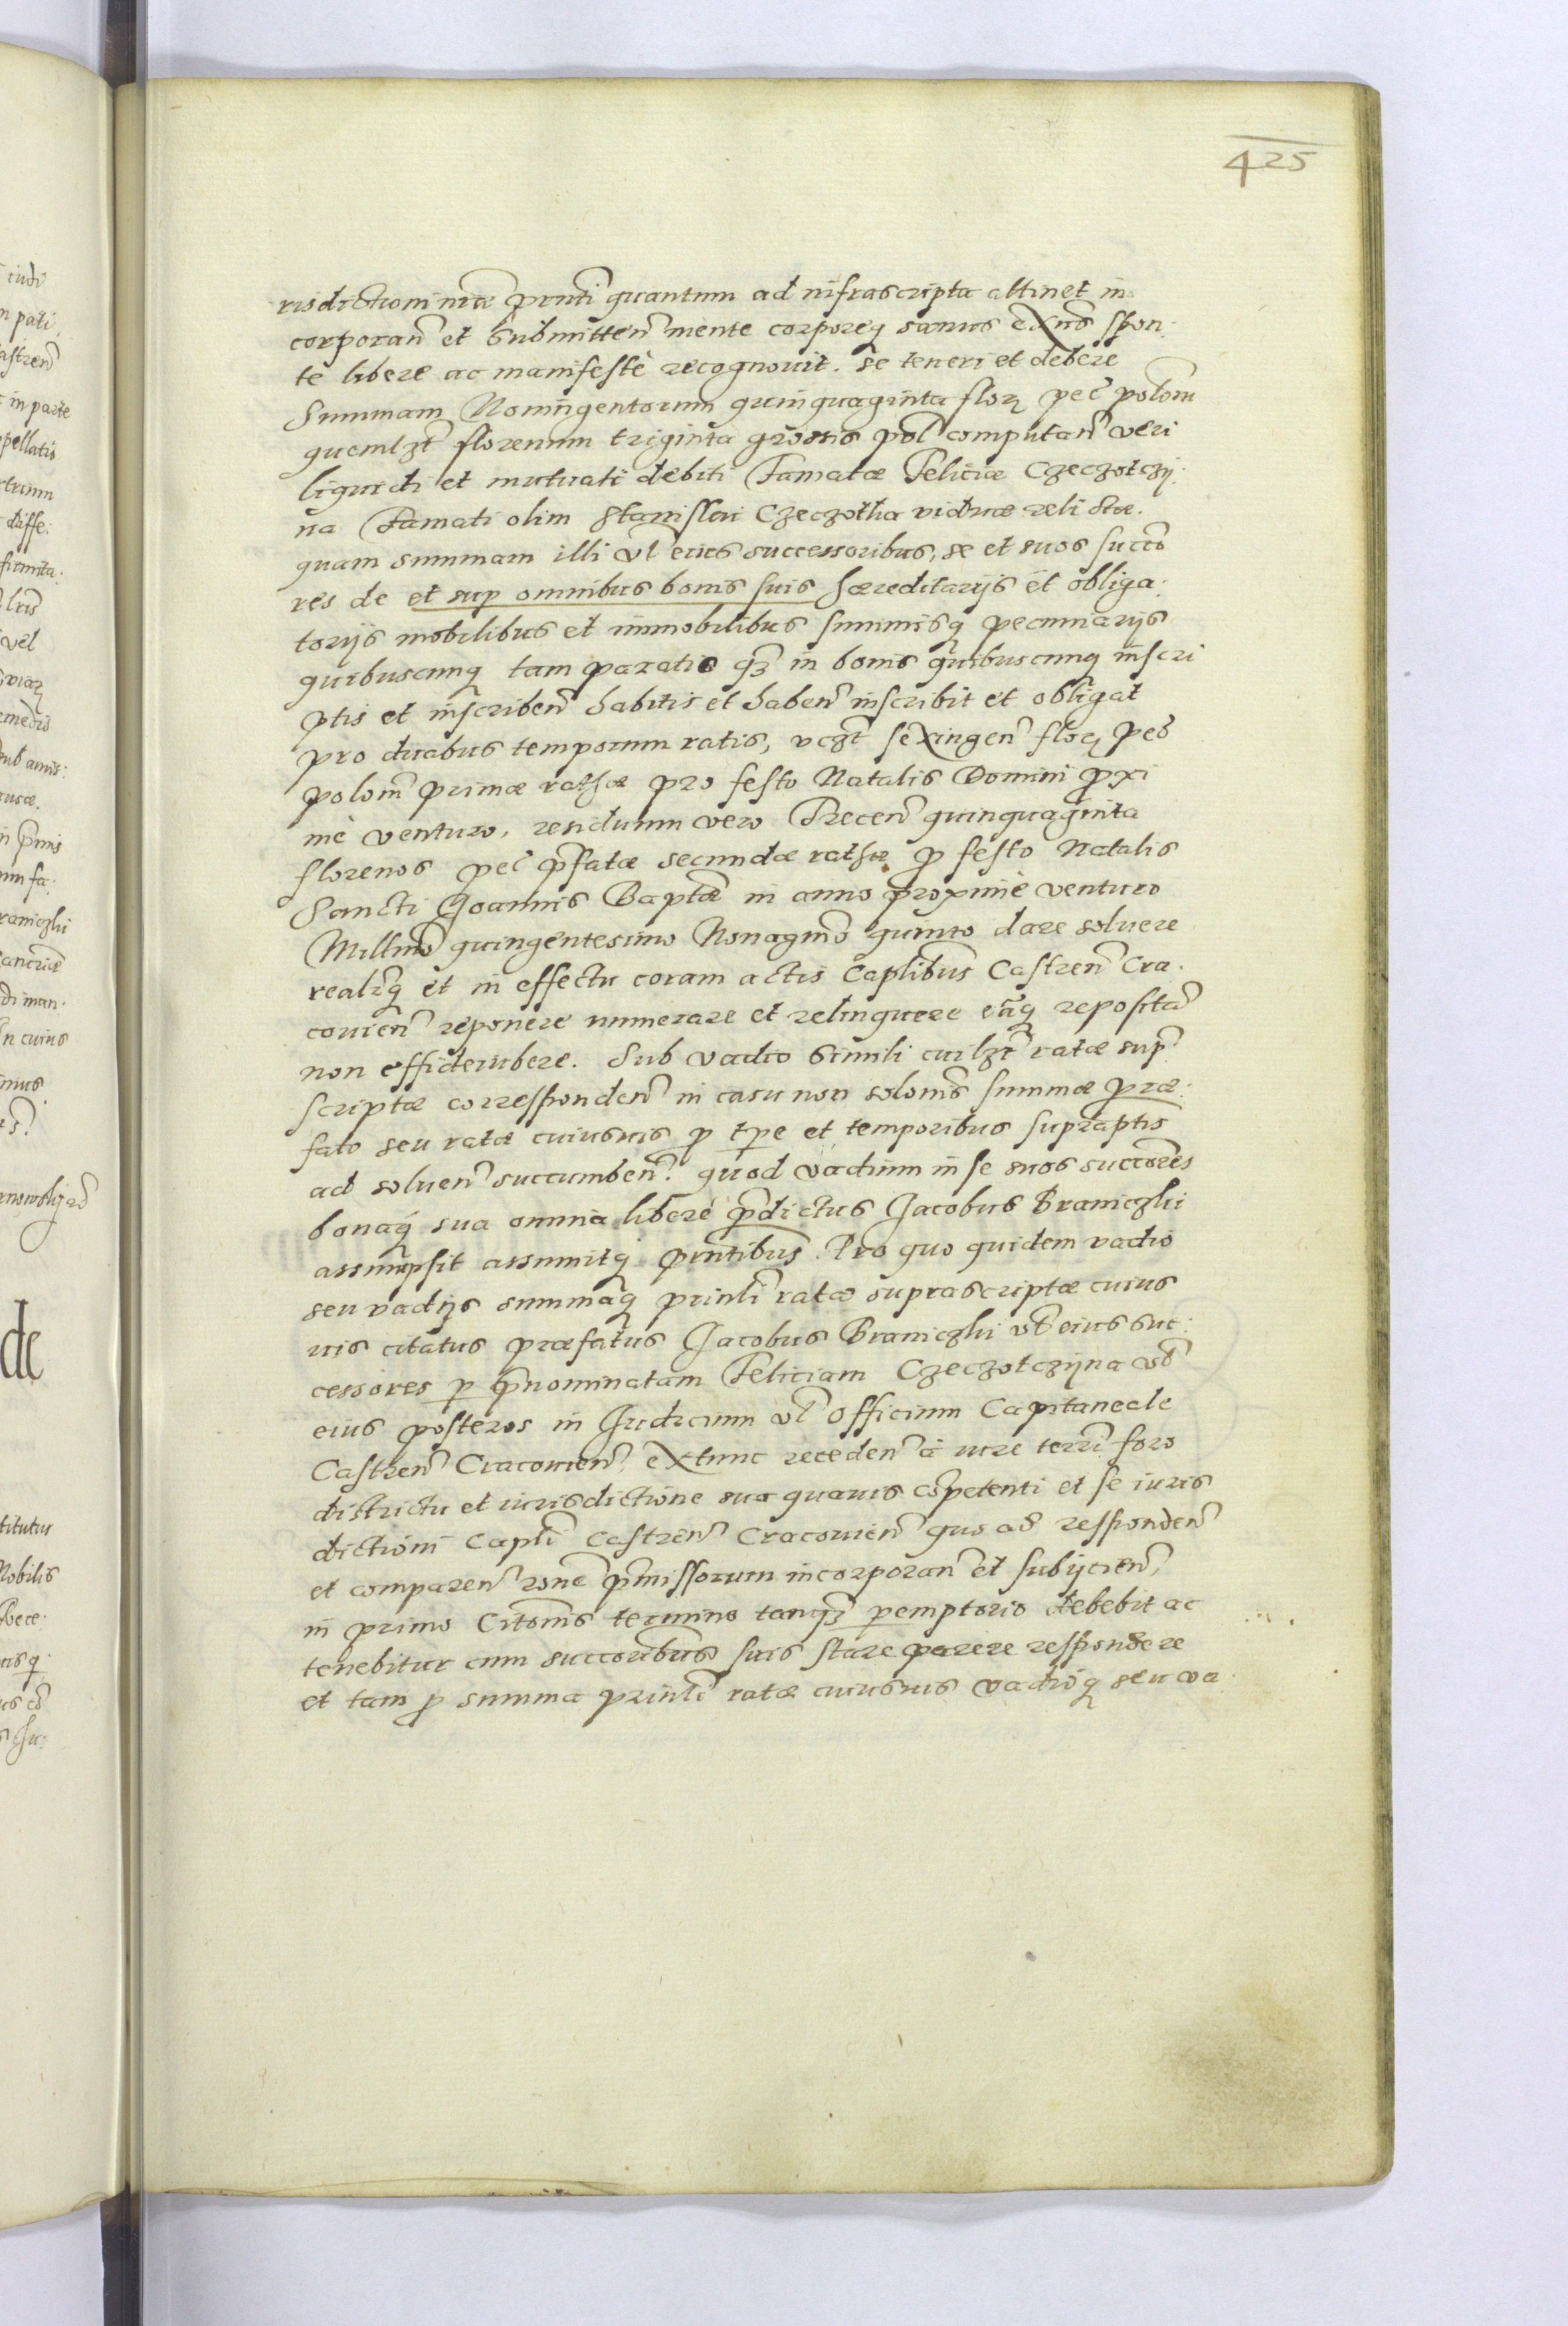 425
risdictioni nrae pnti quantum ad infrascripta attinet in
corporan et submitten mente corporeq sanus exns spon:
te libere ac manifestè recognouit. se teneri et debere
Summam Noningentorum quinquaginta flor pec polom
quemlzt florenum triginta grossis pol computan veri
liquidi et mutuati debiti Famatae Feliciae Czeczotczÿ:
na Famati olim Stanislai Czeczotka viduae relictae.
quam summam illi vl eius successoribus, se et suos succo
res de et sup omnibus bonis suis haereditarijs et obliga:
torijs mobilibus et immobilibus summisq pecuniarijs
quibuscunq tam paratis qz in bonis quibuscunq inscri
ptis et inscriben habitis et haben inscribit et obligat
pro duabus temporum ratis, vczt sexingen flor pec
polom primae rathae pro festo Natalis Domini proxi
mè venturo, residuum vero Trecen quinquaginta
florenos pec pfatae secundae rathae p festo Natalis
Sancti Joannis Baptae in anno proximè venturo
Millmo quingentesimo Nonagmo quinto dare soluere
realrq et in effectu coram actis Caplibus Castren Cra.
couien reponere numerare et relinquere eaq reposita
non difficultare. Sub vadio simili cuilzt ratae sup
scriptae corresponden in casu non solonis summae prae:
fato seu ratae cuiusuis p tpe et temporibus supraptis
ad soluen succumben. quod vadium in se suos succores
bonaq sua omnia liberè pdictus Jacobus Braniczki
assumpsit assumitq pntibus. Pro quo quidem vadio
seu vadijs summaq prinli ratae suprascriptae cuius
uis citatus praefatus Jacobus Braniczki vl eius suc:
cessores p pnominatam Feliciam Czeczotczijna vl
eius posteros in Judicium vl Officium Capitaneale
Castren Cracouien. extunc receden à iure terri foro
districtu et iurisdictione sua quauis competenti et se iuris
dictioni Capli Castren Cracouien quo ad responden
et comparen rone pmissorum incorporan et subijcien,
in primo Citonis termino tanqz peremptorio debebit ac
tenebitur cum succoribus suis stare parere respondere
et tam p summa prinli ratae cuiusuis vadioq seu va